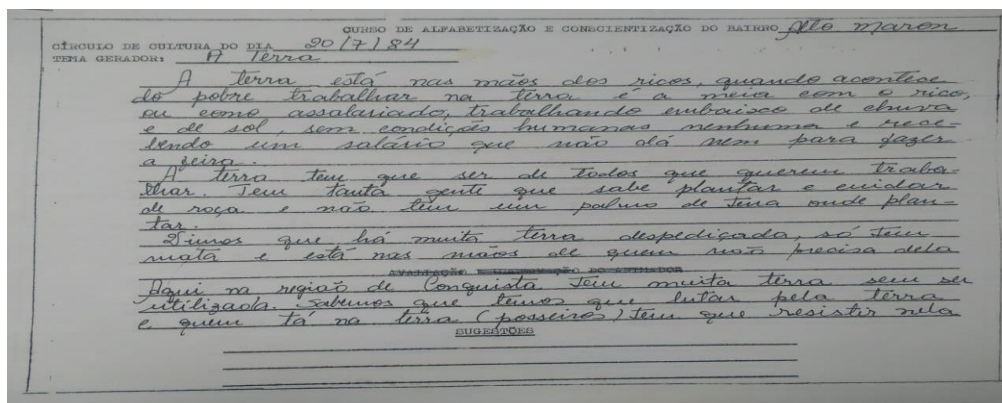 CURSO DE ALFABETIZAÇÃO E CONSCIENTIZAÇÃO DO BAIRRO Alto Maron
CÍRCULO DE CULTURA DO DIA 20/7/84
TEMA GERADOR: A Terra
A terra está nas mãos dos ricos, quando acontece
do pobre trabalhar na terra é a meia com o rico,
ou como assalariado, trabalhando embaixo de chuva
e de sol, sem condições humanas nenhuma e rece-
bendo um salário que não dá nem para fazer
a feira.
A terra tem que ser de todos que querem traba-
lhar. Tem tanta gente que sabe plantar e cuidar
de roça e não tem um palmo de terra onde plan-
tar.
Vimos que há muita terra despediçada, só tem
mata e está nas mãos de quem não precisa dela
AVALIAÇÃO DO ANIMADOR
Aqui na região de Conquista tem muita terra sem ser
utilizada. Sabemos que temos que lutar pela terra
e quem tá na terra (posseiros) tem que resistir nela
SUGESTÕES